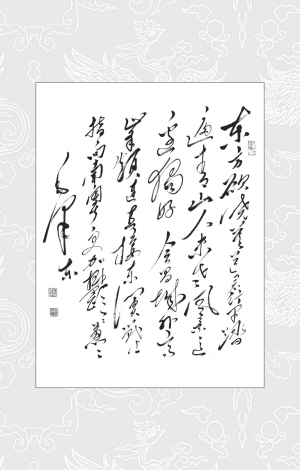 东方欲晓莫道君行早踏
遍青山人未老风景这
边独好 会昌城外高
峰颠连直接东溟战士
指看南粤更加郁々葱々
毛泽东